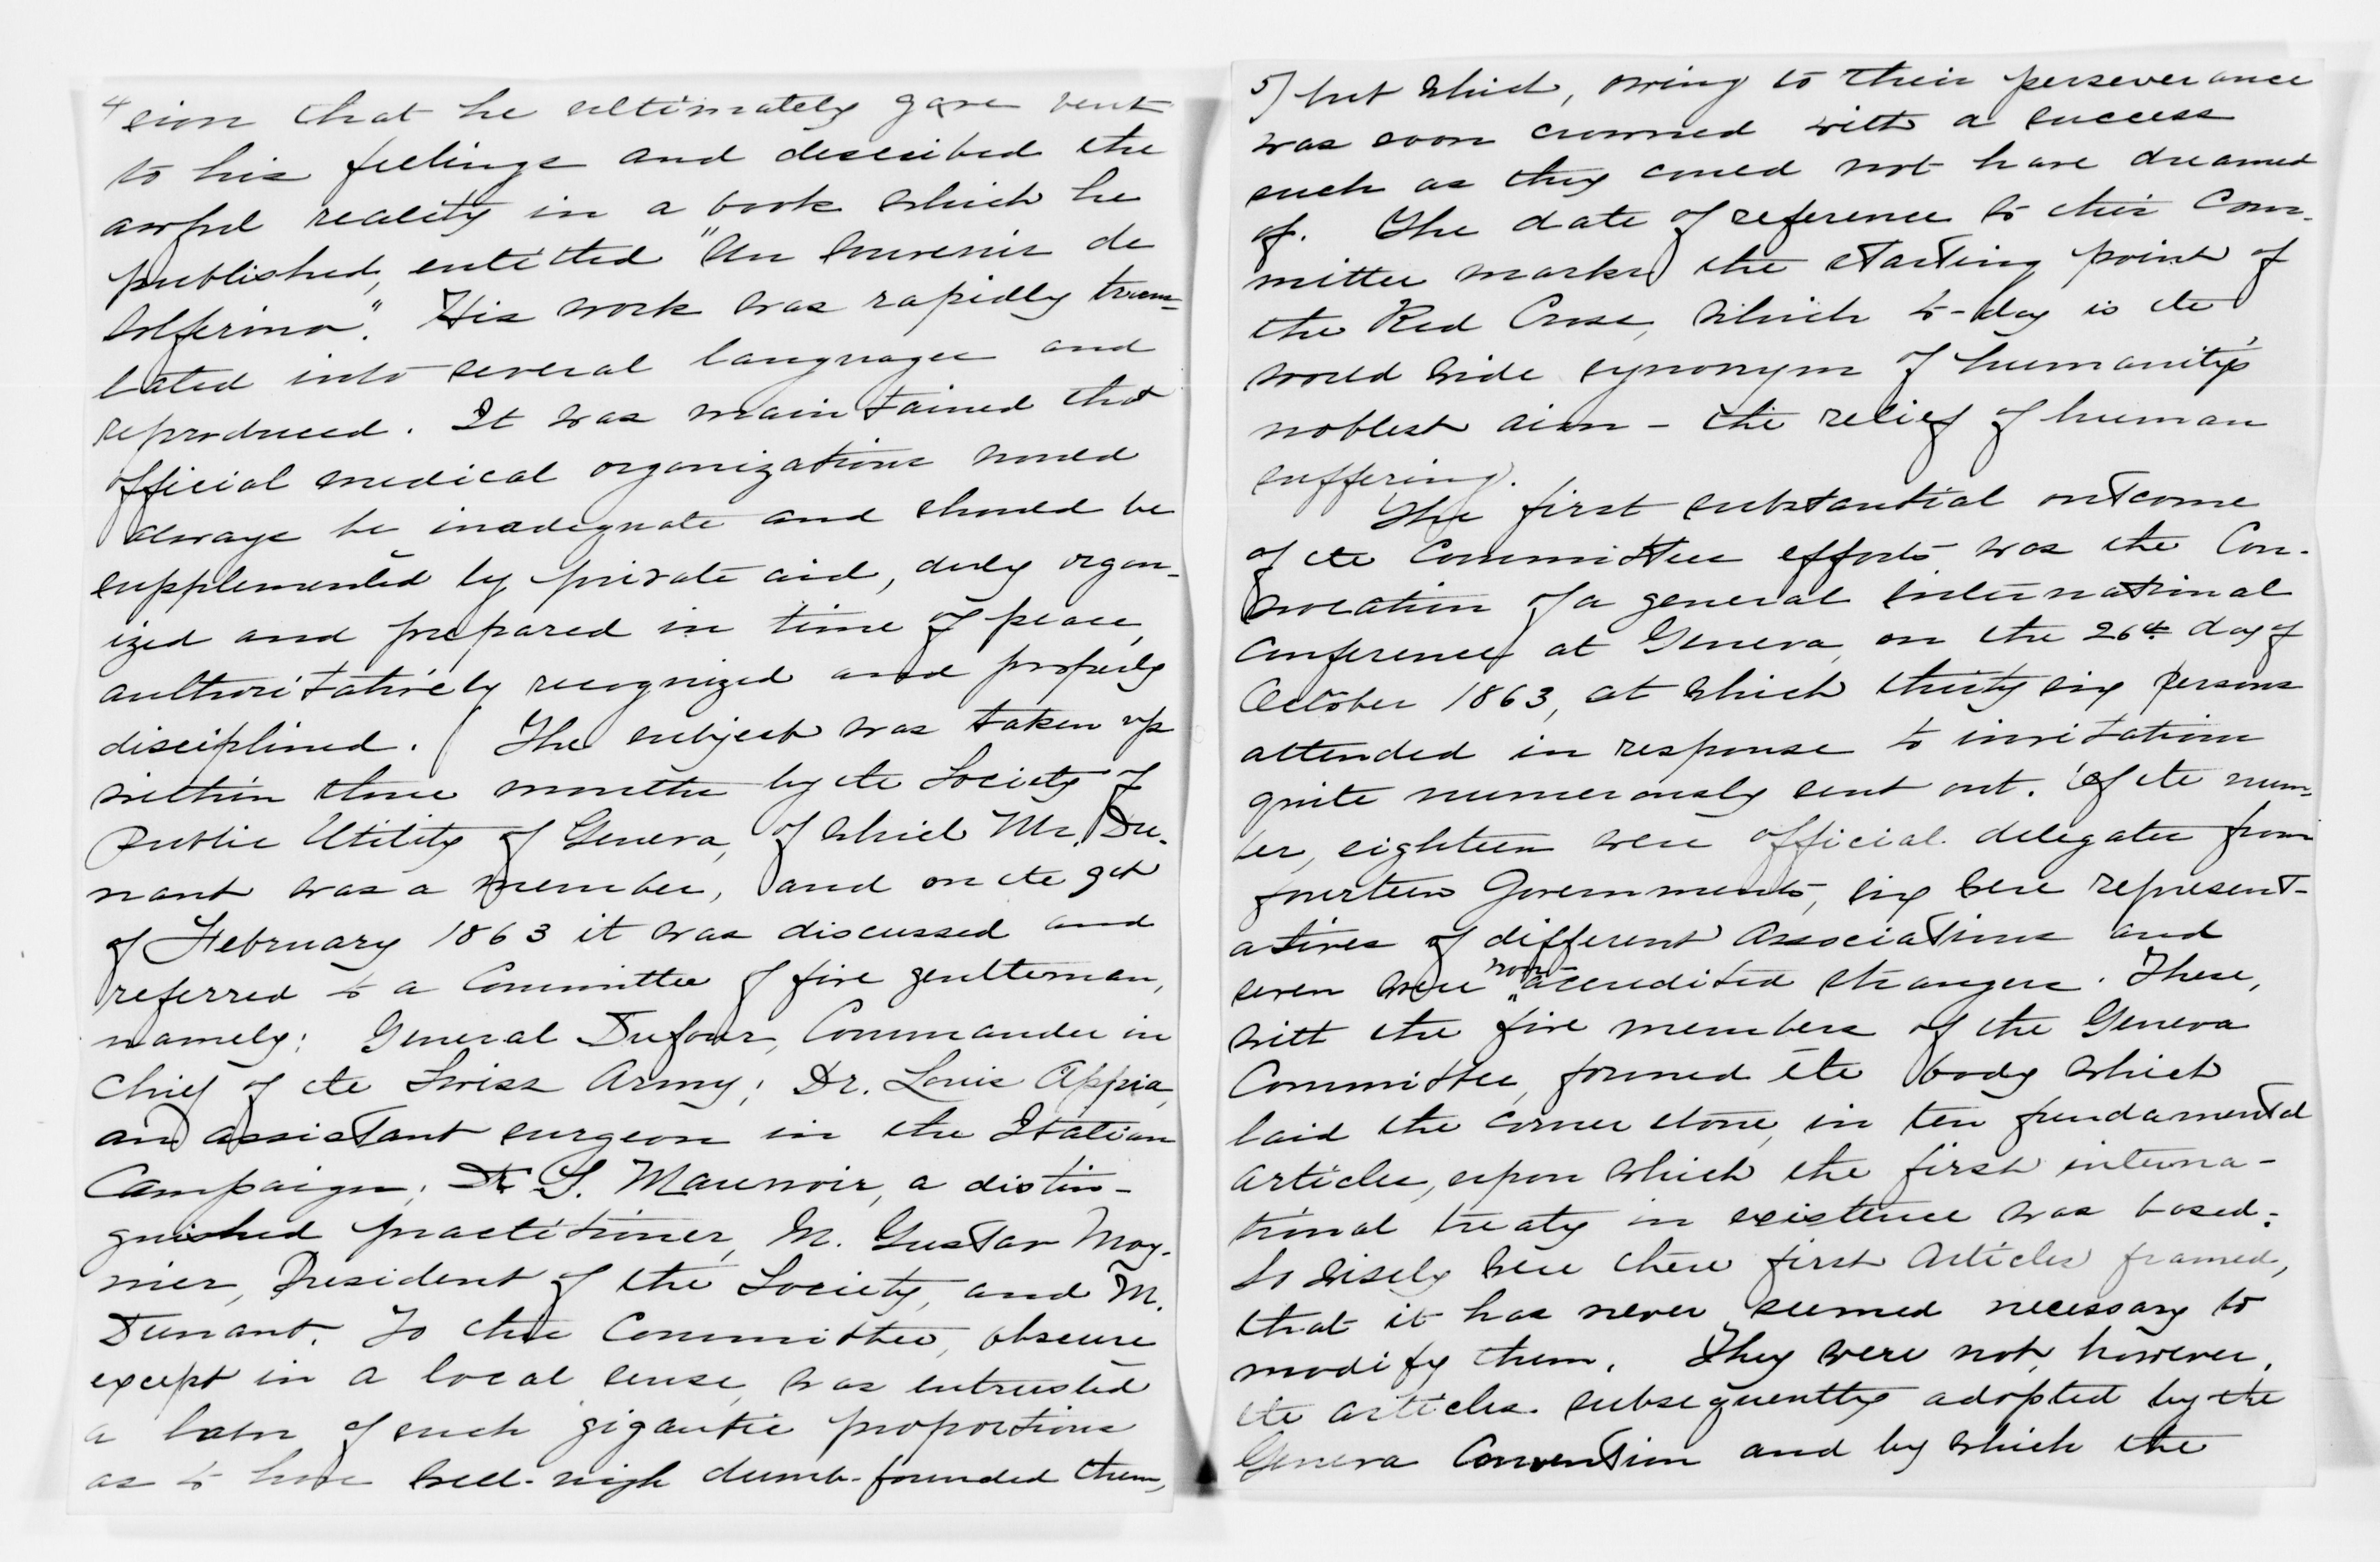 4
sion that he ultimately gave vent
to his feelings and described the
awful reality in a book which he
published, entitled "Un Souvenir de
Solferino". His work was rapidly trans-
lated into several languages and
reproduced. It was maintained that
official medical organizations would
always be inadequate and should be
supplemented by private aid, duly organ-
ized and prepared in time of peace,
authoritatively recognized and properly
disciplined. ( The subject was taken up
within three months by the Society of
Public Utility of Geneva, of which Mr. Du-
nant was a member, and on the 9th
of February 1863 it was discussed and
referred to a Committee of five gentleman,
namely: General Dufour, Commander in
Chief of the Swiss Army; Dr. Louis Appia,
an assistant surgeon in the Italian
Campaign; Dr. T. Maunoir, a distin-
guished practitioner, M. Gustav Moy-
nier, President of the Society, and M.
Dunant. To this Committee, obscure
except in a local sense, was entrusted
a labor of such gigantic proportions
as to have well-nigh dumb-founded them,
5) but which, owing to their perseverance
was soon crowned with a success
such as they could not have dreamed
of. The date of reference to this Com-
mittee marks the starting point of
the Red Cross, which to-day is the
world wide synonym of humanity's
noblest aim - the relief of human
suffering.
The first substantial outcome
of the Committee efforts was the Con-
vocation of a general international
conference at Geneva, on the 26th day of
October 1863, at which thirty six persons
attended in response to invitations
quite numerously sent out. Of the num-
ber, eighteen were official delegates from
fourteen Governments, six were represent-
atives of different associations and
seven were non-accredited strangers. These,
with the five members of the Geneva
Committee, formed the body which
laid the corner stone, in ten fundamental
articles, upon which the first interna-
tional treaty in existence was based.
So wisely were these first Articles framed,
that it has never seemed necessary to
modify them. They were not, however,
the articles subsequently adopted by the
Geneva Convention and by which the